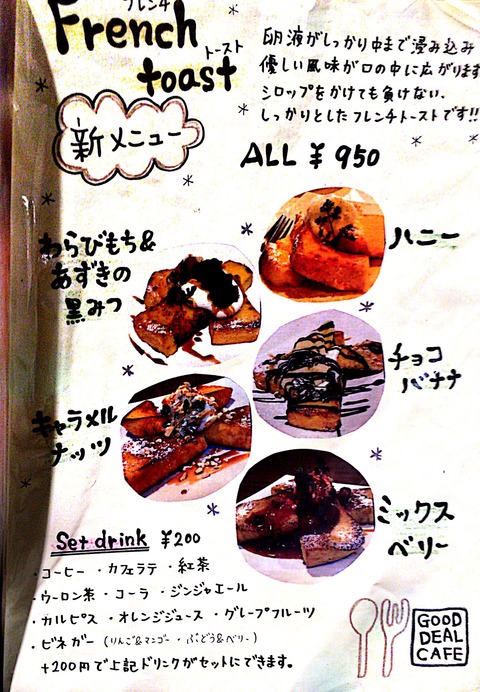 フレンチ
French
トースト
toast
卵液がしっかり中まで浸み込み
優しい風味が口の中に広がります
シロップをかけても負けない、
しっかりとしたフレンチトーストです!!
新メニュー
ALL ¥950
ハニー
わらびもち&
あずきの
黒みつ
チョコ
バナナ
キャラメル
ナッツ
ミックス
ベリー
Set drink ¥200
・コーヒー ・カフェラテ ・紅茶
・ウーロン茶 ・コーラ ・ジンジャエール
・カルピス ・オレンジジュース ・グレープフルーツ
・ビネガー (りんご&マンゴー ・ぶどう&ベリー)
+200円で上記ドリンクがセットにできます。
GOOD
DEAL
CAFE